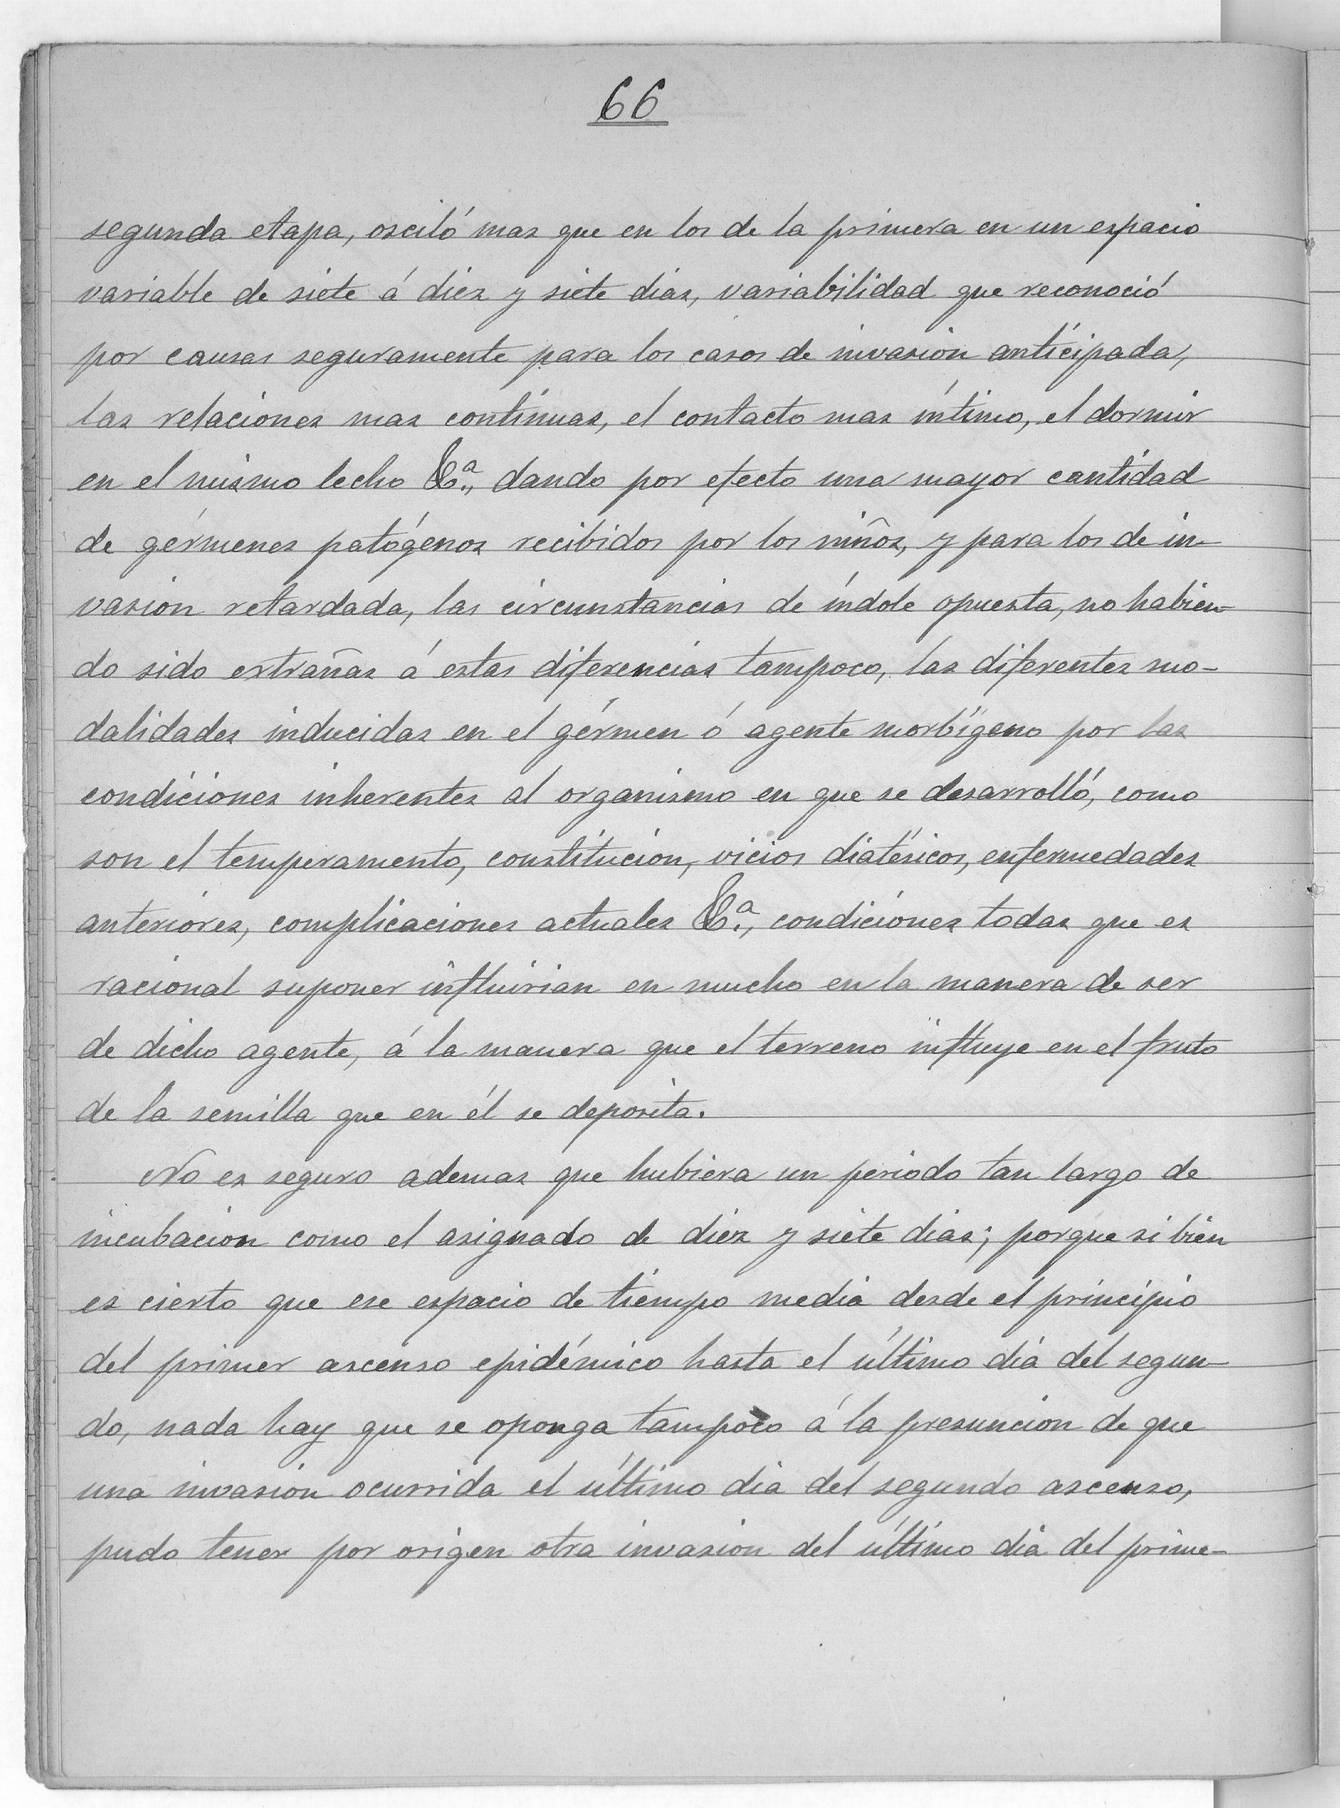 66
segunda etapa, osciló mas que en los de la primera en un espacio
variable de siete á diez y siete dias, variabilidad que reconoció
por causas seguramente para los casos de invasion anticipada,
las relaciones mas contínuas, el contacto mas íntimo, el dormir
en el mismo lecho &.ª, dando por efecto una mayor cantidad
de gérmenes patógenos recibidos por los niños, y para los de in-
vasion retardada, las circunstancias de índole opuesta, no habien-
do sido extrañas á estas diferencias tampoco, las diferentes mo-
dalidades inducidas en el gérmen ó agente morbígeno por las
condiciones inherentes al organismo en que se desarrolló, como
son el temperamento, constitucion, vicios diatésicos, enfermedades
anteriores, complicaciones actuales &.ª, condiciones todas que es
racional suponer influirian en mucho en la manera de ser
de dicho agente, á la manera que el terreno influye en el fruto
de la semilla que en él se deposita.
No es seguro ademas que hubiera un periodo tan largo de
incubacion como el asignado de diez y siete dias; porque si bien
es cierto que ese espacio de tiempo media desde el principio
del primer ascenso epidémico hasta el último dia del segun-
do, nada hay que se oponga tampoco á la presuncion de que
una invasion ocurrida el último dia del segundo ascenso,
pudo tener por origen otra invasion del último dia del prime-